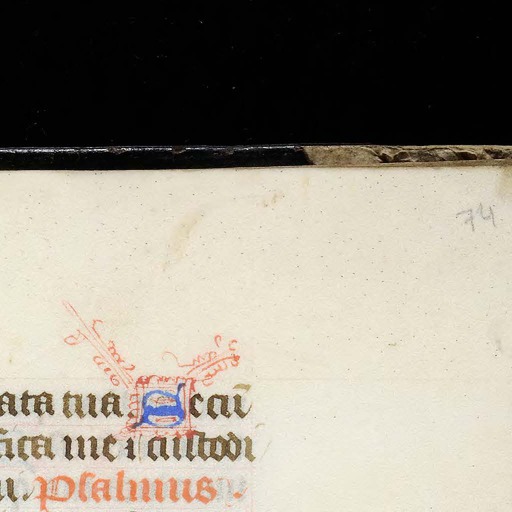 74
ata tua. Secū
fica me i custodi
Psalmus